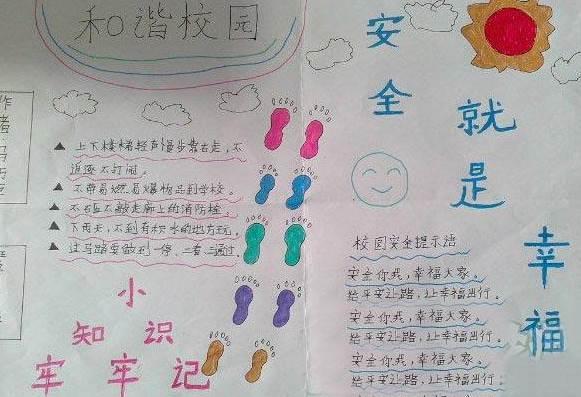 和谐校园
▲ 上下楼梯轻声慢步靠右走,不
追逐不打闹。
▲ 不带易燃易爆物品到学校。
▲ 不砸不敲走廊上的消防栓。
▲ 下雨天,不到有积水的地方玩。
▲ 过马路要做到一停、二看、三通过。
小
知 识
牢 牢 记
安全
就是
幸福
校园安全提示语
安全你我,幸福大家。
给平安让路,让幸福出行。
安全你我,幸福大家。
给平安让路,让幸福出行。
安全你我,幸福大家。
给平安让路,让幸福出行。